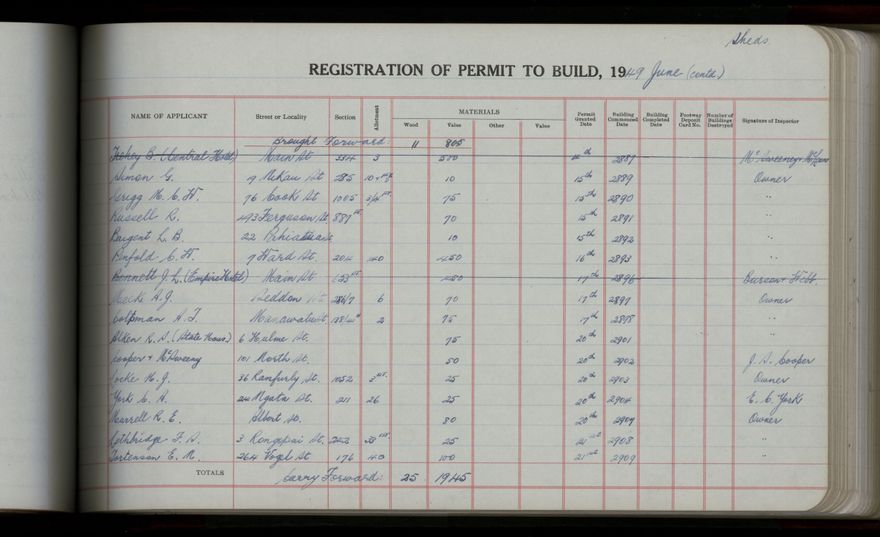 Sheds
REGISTRATION OF PERMIT TO BUILD, 1949 June (contd.)
NAME OF APPLICANT Street or Locality Section Allotment MATERIALS Permit Granted Date Building Commenced Date Building Completed Date Footway Deposit Card No. Number of Buildings Destroyed Signature of Inspector
Wood Value Other Value
Brought Forward 11 805
B. (Central Hotel) Main St 3 500 th 2887
G. 9 St 285 10 15th 2889 Owner
H. C. W. 76 Cook St 1005 75 15th 2890 "
Russell R. 493 Ferguson St 887 70 15th 2891 "
Bargent L. B. 22 10 15th 2892 "
Binfold C. W. 7 Ward St. 204 40 450 16th 2893 "
Bennett J. L. (Empire Hotel) Main St 653 450 17th 2896
A. J. Seddon St 6 70 17th 2897 Owner
A. T. Manawatu St. 2 75 17th 2898 "
R. A. (State House) 6 Hulme St. 75 20th 2901 "
Cooper & McSweeny 101 North St. 50 20th 2902 J. S. Cooper
Locke H. J. 36 Ranfurly St. 1052 3 25 20th 2903 Owner
York C. A. 24 Ngata St. 211 26 25 20th 2904 E. C. York
R. E. Albert St. 80 20th 2907 Owner
Lethbridge F. A. 3 Rongopai St. 25 21st 2908 "
Tortenson E. N. 264 Vogel St 176 40 100 21st 2909 "
TOTALS Carry Forward: 25 1945